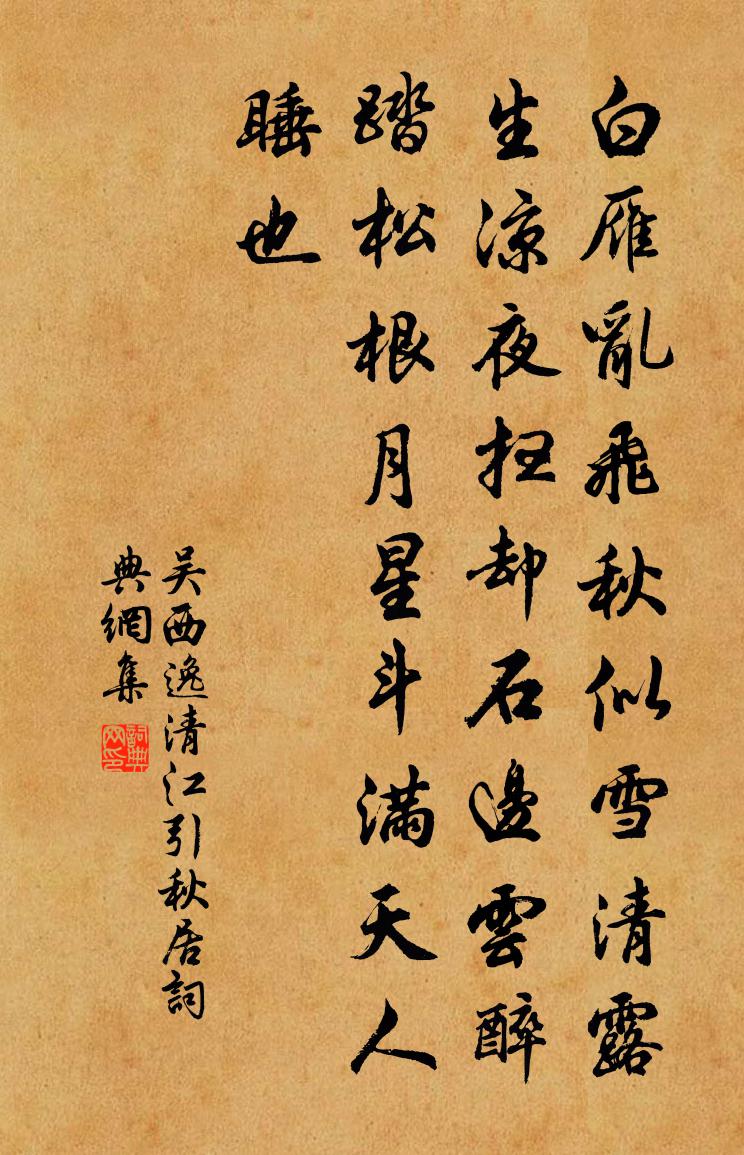 白雁亂飛秋似雪清露
生涼夜扫却石邊雲醉
踏松根月星斗滿天人
睡也
吴西逸清江引秋居詞
典網集
詞典网印